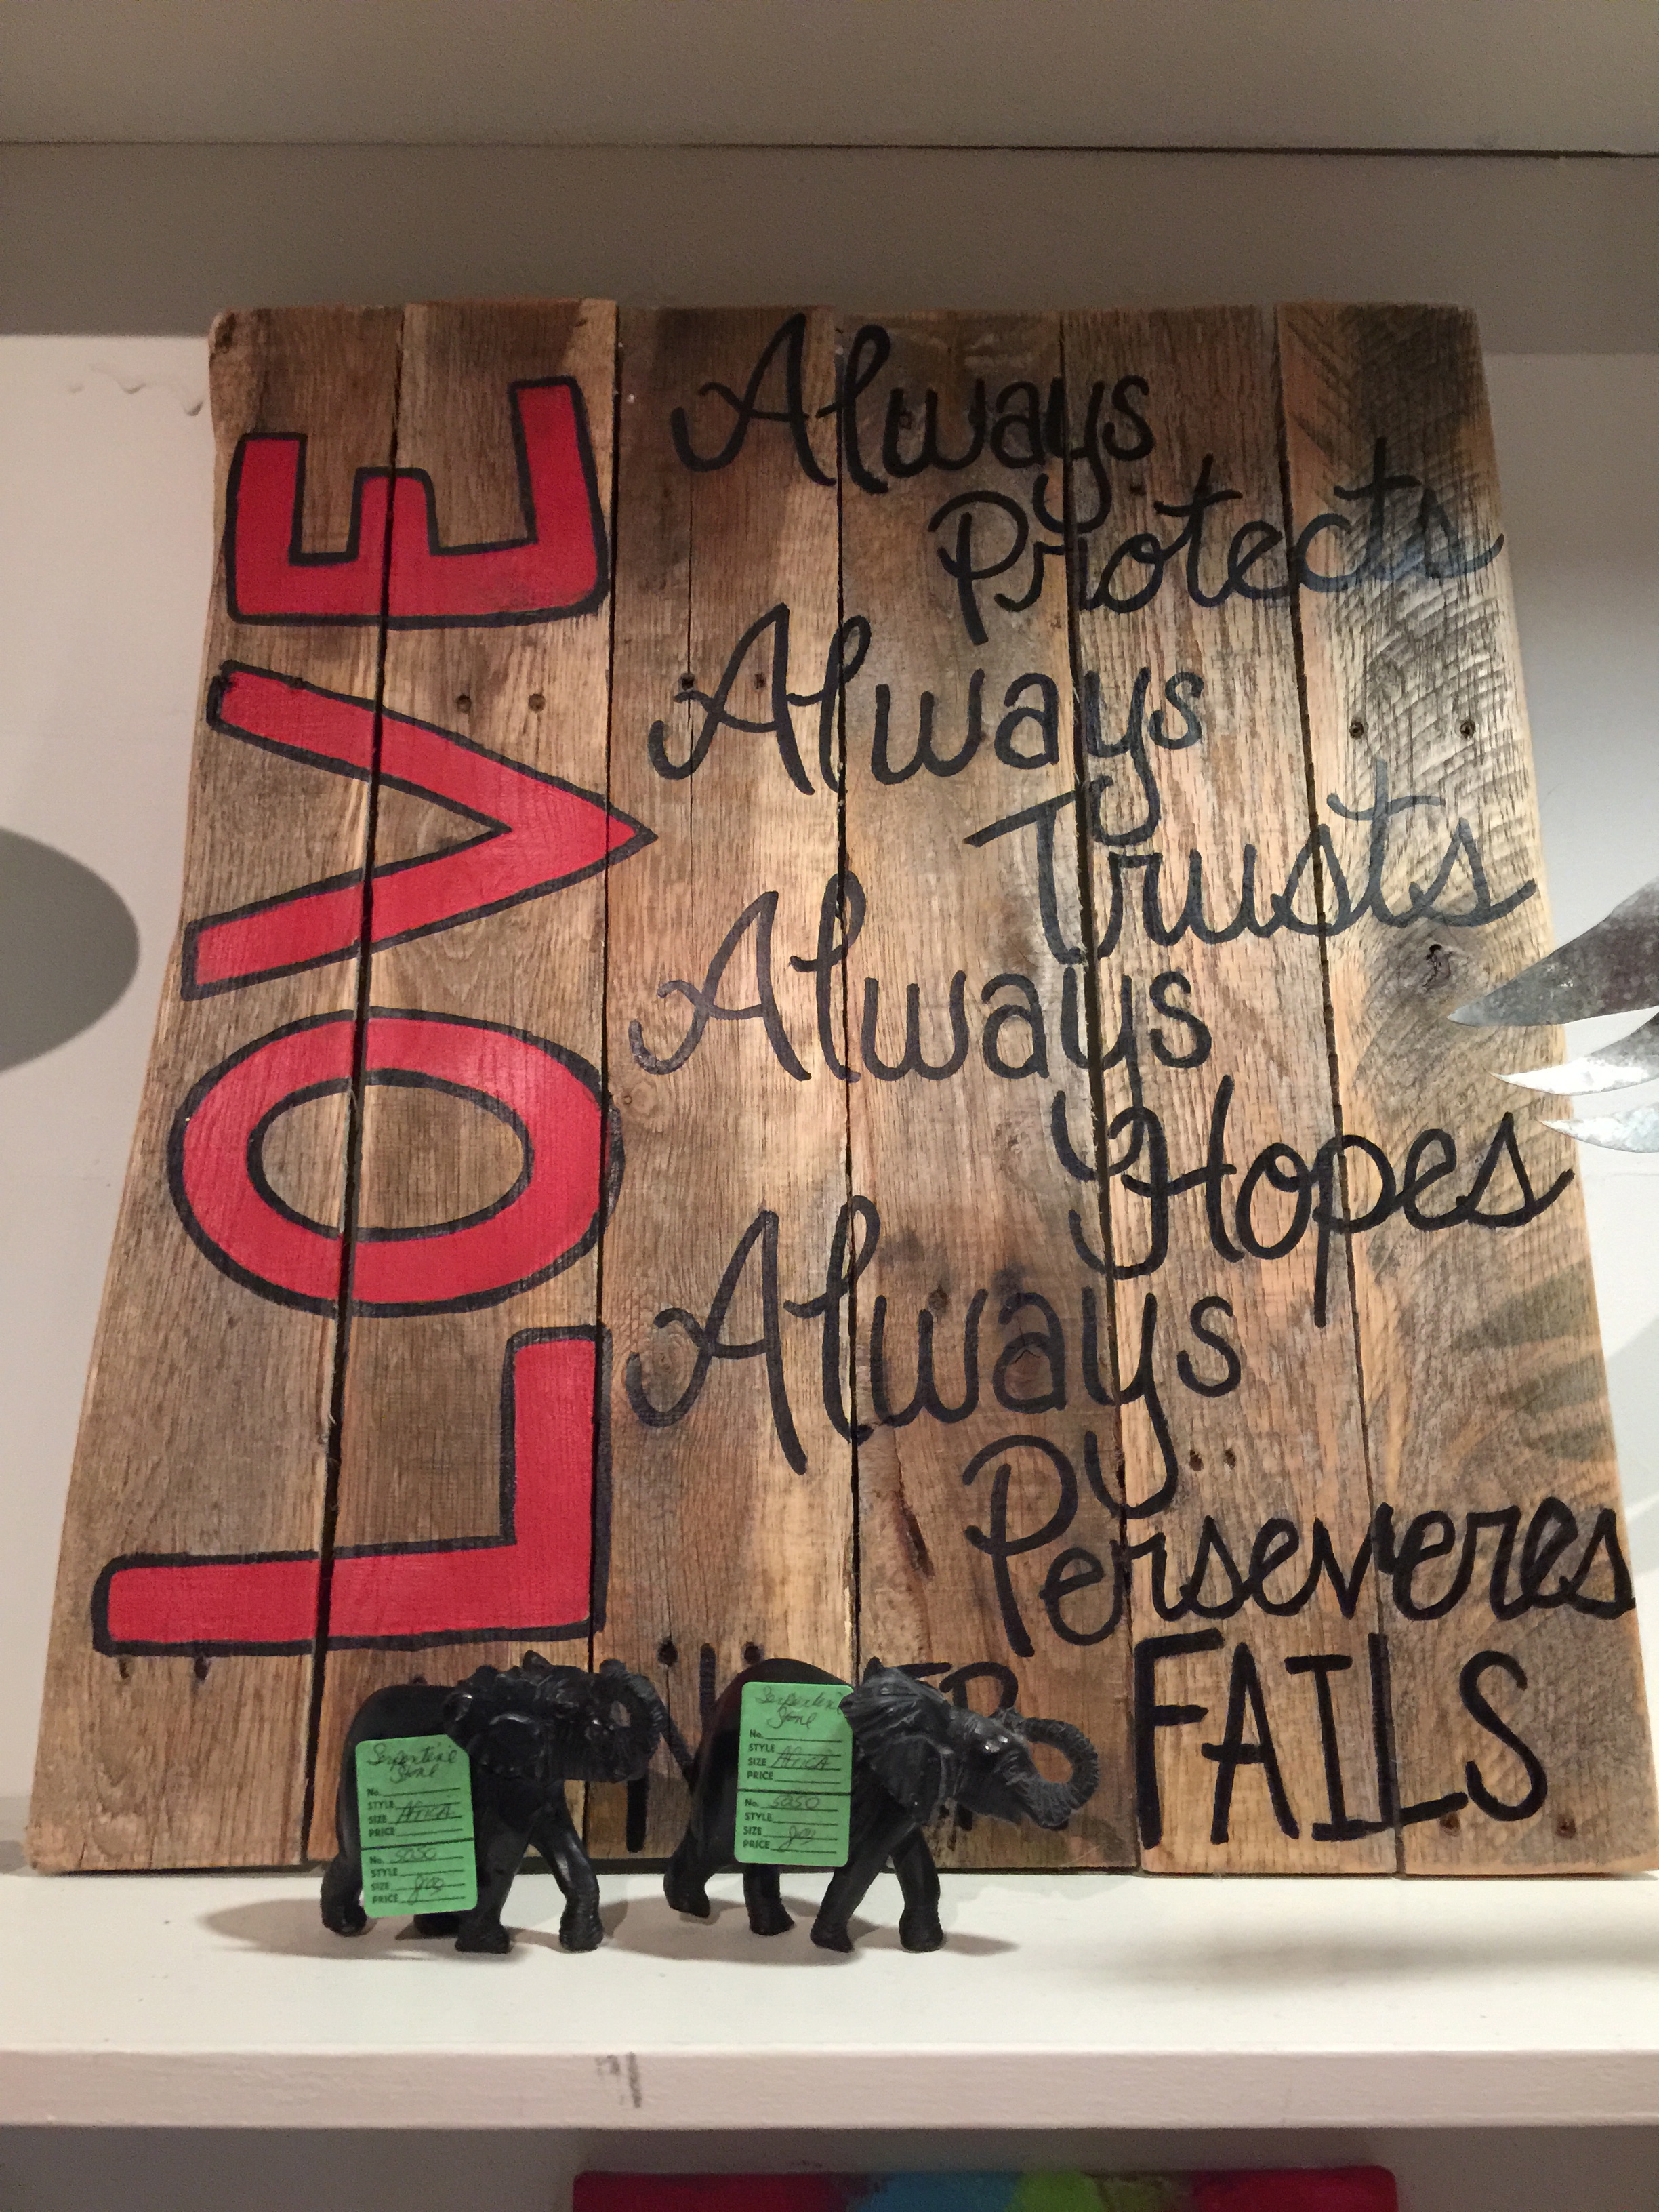 LOVE
Always
Protects
Always
Trusts
Always
Hopes
Always
Perseveres
FAILS
Serpentine
Stone
No.
STYLE
SIZE Africa
PRICE
No. 5050
STYLE
SIZE
PRICE
Serpentine
Stone
No.
STYLE
SIZE Africa
PRICE
No. 5050
STYLE
SIZE
PRICE